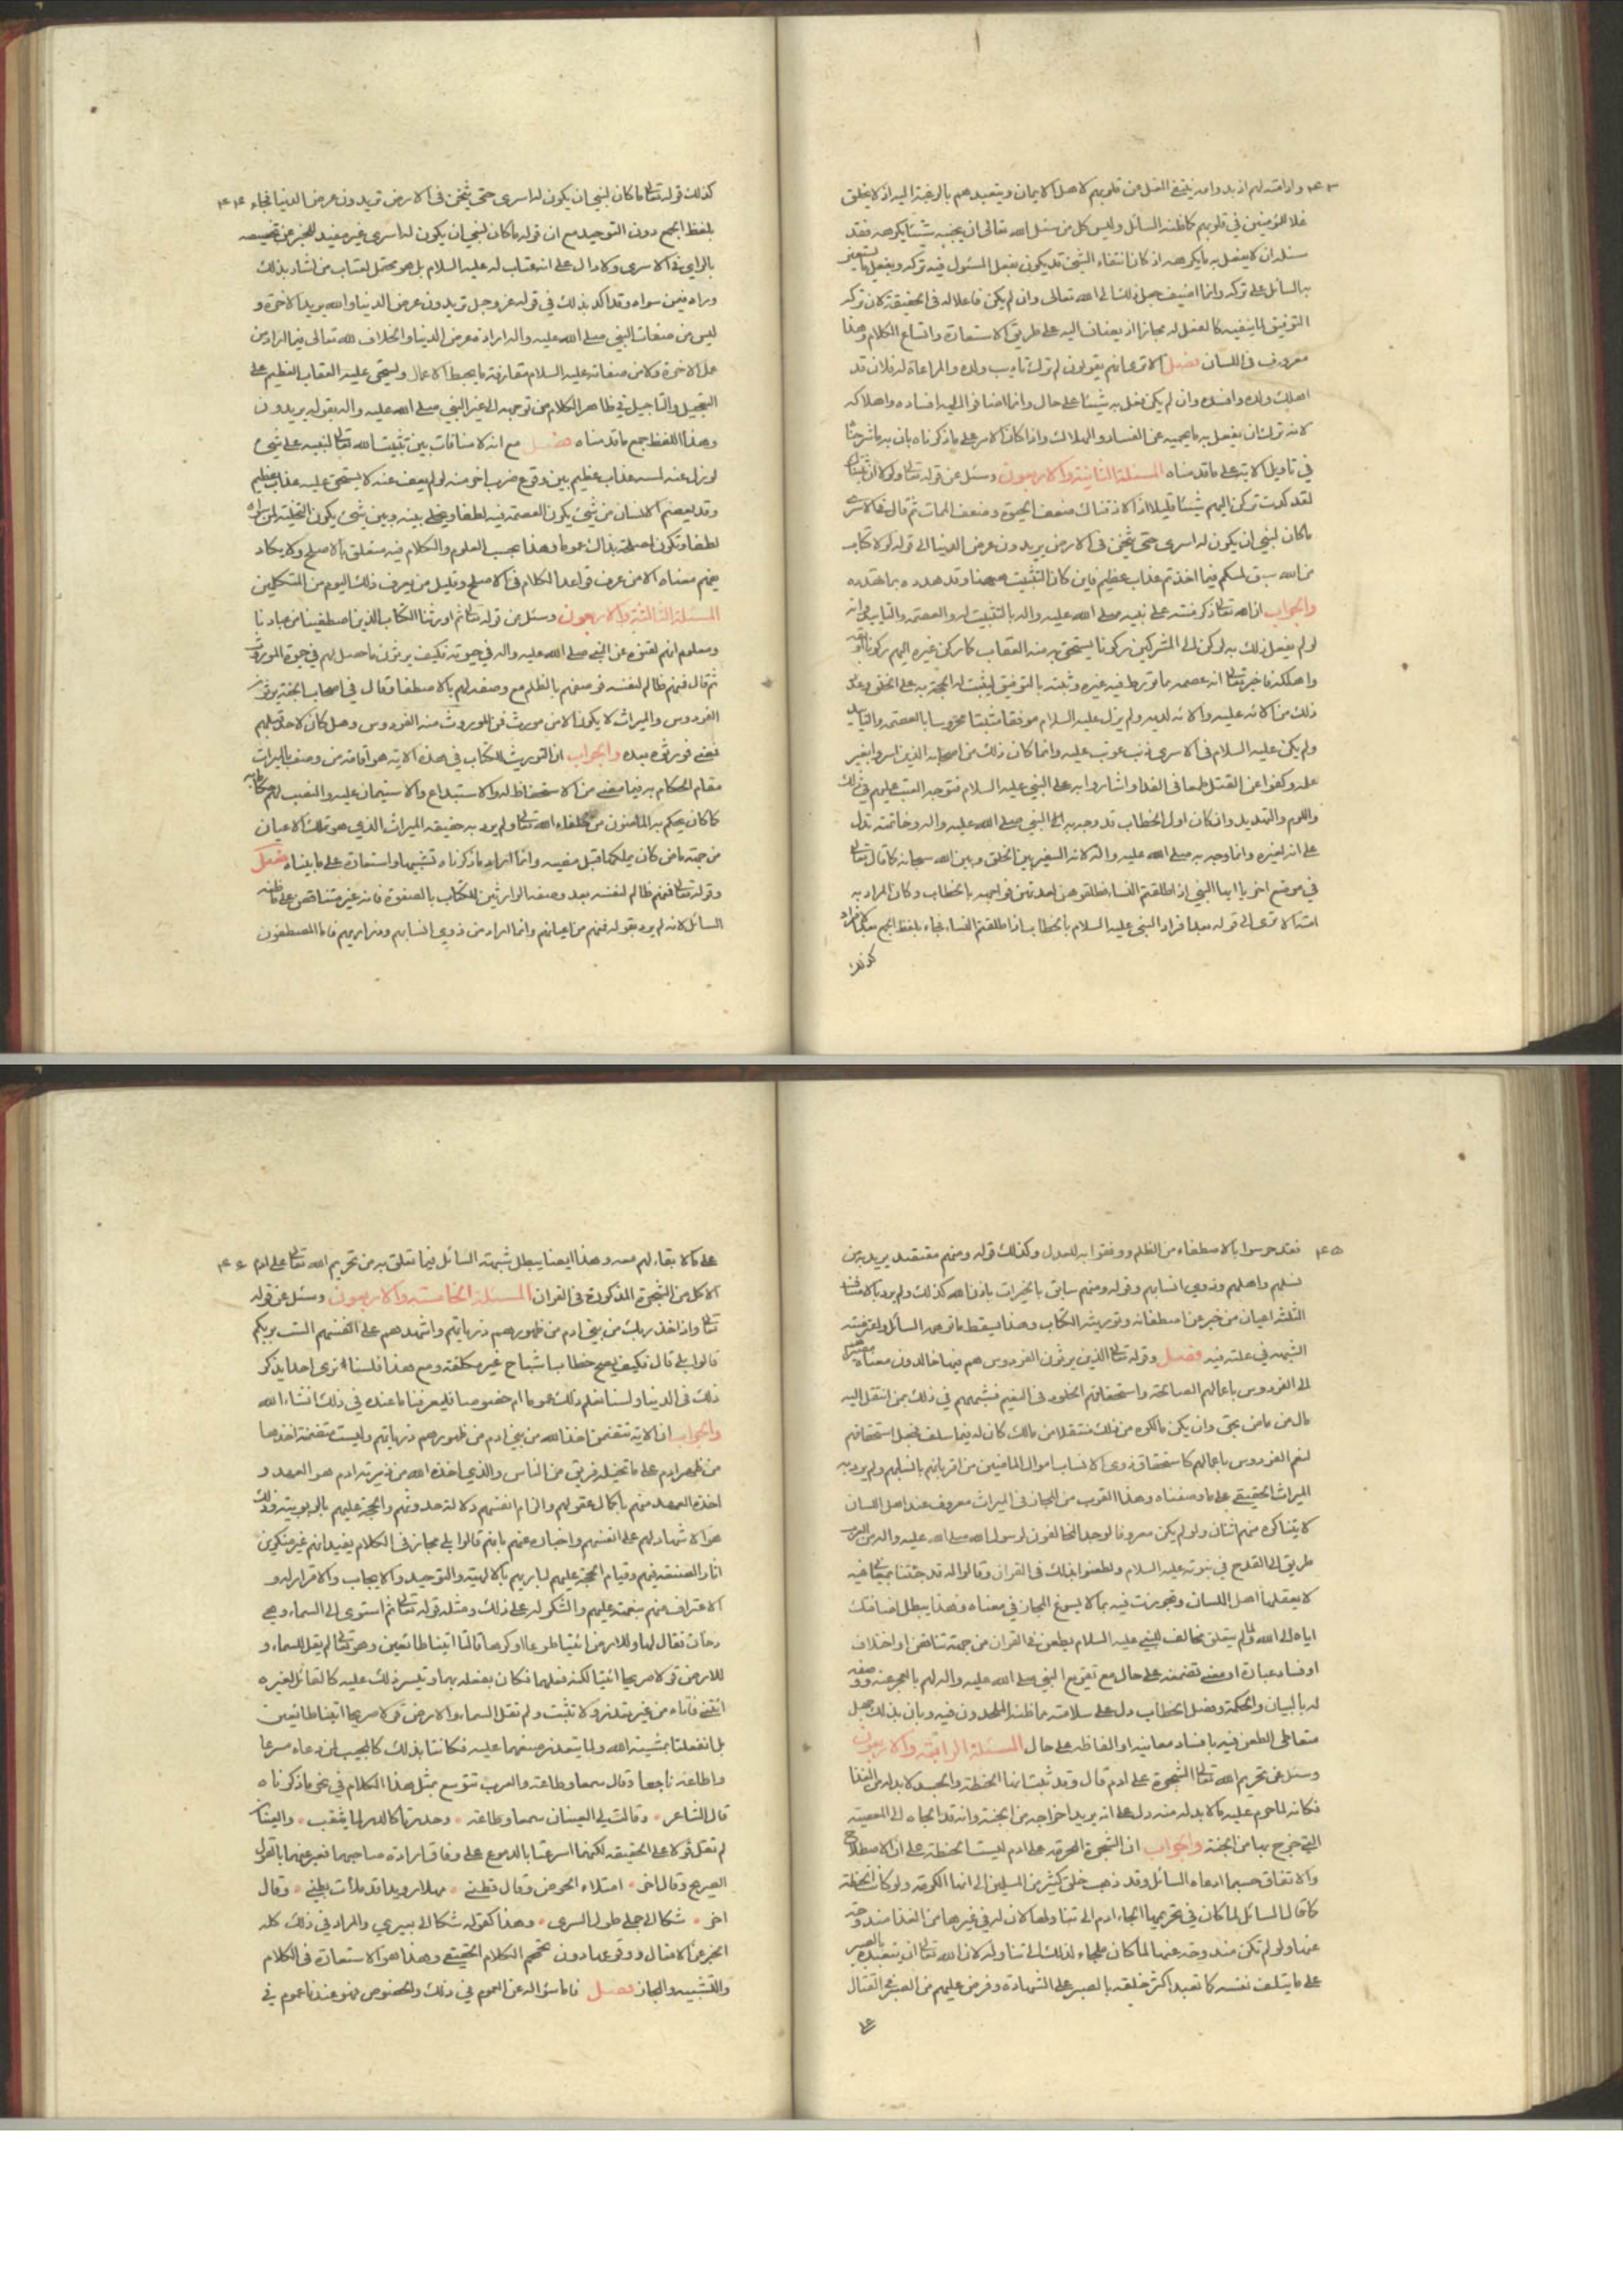 وارادته لهم اذ بدوامه ينتفى الغل عن قلوبهم لاهل الايمان ويتعبدهم بالرغبة اليه اذ لا يخلق
غلا للمؤمنين في قلوبهم كما ظنه السائل وليس كل من سئل الله تعالى ان يجنبه شيئا يكرهه فقد
سئله ان لا يفعل به ما يكرهه اذ كان انتفاء الشئ قد يكون بفعل المسئول فيه تركه وبفعل ما يستعين
به السائل على تركه وانما اضيف جعل ذلك الى الله تعالى وان لم يكن فاعلا له في الحقيقة لان ترك
التوفيق لما ينفيه كالفعل له مجازا اذ يضاف اليه على طريق الاستعارة واتساع الكلام وهذا
معروف في اللسان فصل الا ترى انهم يقولون لم ترك تاديب ولده والمراعاة له فلان قد
اهلك ولده وافسده وان لم يكن فعل به شيئا على حال وانما اضافوا اليه افساده واهلاكه
لانه ترك ان يفعل به ما يحميه عن الفساد والهلاك واذا كان الامر على ما ذكرناه بان به ما شرحنا
في تاويل الاية على ما قدمناه المسئلة الثانية والاربعون وسئل عن قوله تعالى ولولا ان ثبتناك
لقد كدت تركن اليهم شيئا قليلا اذا لاذقناك ضعف الحيوة وضعف الممات ثم قال في الاسرى
ما كان لنبي ان يكون له اسرى حتى يثخن في الارض يريدون عرض الدنيا الى قوله لولا كتاب
من الله سبق لمسكم فيما اخذتم عذاب عظيم فاين كان التثبيت ههنا وقد هدده بما هدده
والجواب ان الله تعالى ذكر منته على نبيه صلى الله عليه واله بالتثبيت له والعصمة والتاييد وانه
لو لم يفعل ذلك به لركن الى المشركين ركونا يستحق به منه العقاب كما ركن غيره اليهم ركونا
واهلكه فاخبر تعالى انه عصمه مما تورط فيه غيره وثبته بالتوفيق ليثبت له الحجة به على الخلق وعد
ذلك من الائه عليه والائه لديه ولم يزل عليه السلام موفقا مثبتا محروسا بالعصمة والتاييد
ولم يكن عليه السلام في الاسرى ذنب عوتب عليه وانما كان ذلك من اصحابه الذين اسروا بغير
علمه وكفوا عن القتل طمعا في الفداء واشاروا به على النبي عليه السلام فتوجه العتب عليهم في ذلك
واللوم والتهديد وان كان اول الخطاب قد وجه به الى النبي صلى الله عليه واله وخاتمته تدل
على انه لغيره وانما وجه به صلى الله عليه واله لانه السفير بين الخلق وبين الله سبحانه كما قال تعالى
في موضع اخر يا ايها النبي اذا طلقتم النساء فطلقوهن لعدتهن فواجهه بالخطاب وكان المراد به
امته الا ترى الى قوله بعد افراد النبي عليه السلام بالخطاب اذا طلقتم النساء فجاء بلفظ الجمع بعد الافراد
كذلك
كذلك قوله تعالى ما كان لنبي ان يكون له اسرى حتى يثخن في الارض تريدون عرض الدنيا فجاء
بلفظ الجمع دون التوحيد مع ان قوله ما كان لنبي ان يكون له اسرى غير مفيد للخبر عن تخصيصه
بالراي في الاسرى ولا دال على انه عتاب له عليه السلام بل هو محتمل لعتاب من اشار بذلك
وراه فيمن سواه وقد اكد بذلك في قوله عز وجل تريدون عرض الدنيا والله يريد الاخرة و
ليس من صفات النبي صلى الله عليه واله ارادة عرض الدنيا والخلاف لله تعالى فيما اراد من
عمل الاخرة ولا من صفاته عليه السلام مقارفة ما يحبط الاعمال ويستحق عليه العقاب العظيم على
التعجيل والتاجيل في ظاهر الكلام من توجهه الى غير النبي صلى الله عليه واله بقوله يريدون
وهذا اللفظ جمع ما قدمناه فصل مع انه لا منافاة بين تثبيت الله تعالى لنبيه على شئ
لو زل عنه لمسه عذاب عظيم بين وقوع ضرب اخر منه لو لم يعف عنه لا يستحق عليه عذاب عظيم
وقد يعصم الانسان من شئ يكون العصمة فيه لطفا ويخلى بينه وبين شئ يكون التخلية له
لطفا وتكون اصلح بذلك عموما وهذا بحسب العلوم والكلام فيه متعلق بالاصلح ولا يكاد
يفهم معناه الا من عرف قواعد الكلام في الاصلح وقليل من يعرف ذلك اليوم من المتكلمين
المسئلة الثالثة والاربعون وسئل عن قوله تعالى ثم اورثنا الكتاب الذين اصطفينا من عبادنا
ومعلوم انهم لقنوه عن النبي صلى الله عليه واله في حيوته فكيف يرثون ما حصل لهم في حيوة الموروث
ثم قال فمنهم ظالم لنفسه فوصفهم بالظلم مع وصفه لهم بالاصطفاء وقال في اصحاب الجنة يرثون
الفردوس والميراث لا يكون الا من مورث فمن الموروث منه الفردوس وهل كان لاحد قبلهم
فورثوه بعده والجواب ان التوريث للكتاب في هذه الاية هو اقامته من وصف بالميراث
مقام الحكام به فيما مضى من الاستحفاظ له والاستيداع والاستيمان عليه والنصب لهم حكاما به
كما كان يحكم به الماضون من خلفاء الله تعالى ولم يرد به حقيقة الميراث الذي هو تملك الاعيان
من جهة ماض كان يملكها قبل مضيه وانما اراد ما ذكرناه تشبيها واستعارة على ما بيناه فصل
وقوله تعالى فمنهم ظالم لنفسه بعد وصفه الوارثين للكتاب بالصفوة فانه غير متناقض على ما ظنه
السائل لانه لم يرد بقوله فمنهم من اعيانهم وانما اراد من ذوي انسابهم وذراريهم فاما المصطفون
فقد حرسوا بالاصطفاء من الظلم ووفقوا به للعدل وكذلك قوله ومنهم مقتصد يريد به من
نسلهم واهلهم وذوي انسابهم وقوله ومنهم سابق بالخيرات باذن الله كذلك ولم يرد بالاصناف
الثلثة اعيان من خبر عن اصطفائه وتوريثه الكتاب وهذا يسقط ما توهمه السائل واعترضته
الشبهة في علته فيه فصل وقوله تعالى الذين يرثون الفردوس هم فيها خالدون معناه
الى الفردوس باعمالهم الصالحة واستحقاقهم الخلود في النعيم فشبههم في ذلك بمن انتقل اليه
مال من ماض بحق وان لم يكن مالكوه من ذلك منتقلا من مالك كان له فيما سلف فجعل استحقاقهم
لنعم الفردوس باعمالهم كاستحقاق ذوى الانساب اموال الماضين من اقربائهم بانسابهم ولم يرد به
الميراث الحقيقي على ما وصفناه وهذا الضرب من المجاز في الميراث معروف عند اهل اللسان
لا يتناكره منهم اثنان ولو لم يكن معروفا لوجد المخالفون لرسول الله صلى الله عليه واله من العرب
طريق الى القدح في نبوته عليه السلام ولطعنوا بذلك في القران وقالوا له قد جئتنا
لا يعقلها اهل اللسان وتجوزت فيه بما لا يسوغ المجاز في معناه وهذا يبطل اضافتك
اياه الى الله ولما لم يتعلق مخالف للنبي عليه السلام بطعن في القران من جهة تناقض او اختلاف
او فساد عبارة او معنى تضمنه على حال مع تقريع النبي صلى الله عليه واله لهم بالعجز عنه ووصفه
له بالبيان والحكمة وفصل الخطاب دل على سلامته مما ظنه الملحدون فيه وبان بذلك جهل
متعاطى الطعن فيه بافساد معانيه او الفاظه على حال المسئلة الرابعة والاربعون
وسئل عن تحريم الله تعالى الشجرة على ادم قال وقد ثبت انها الحنطة والجسد لا بد له من الغذا
فكانه لما حرم عليه ما لا بد له منه دل على انه يريد اخراجه من الجنة وانه قد الجاه الى المعصية
التي خرج بها من الجنة والجواب ان الشجرة المحرمة على ادم ليست الحنطة على الاصطلاح
والاتفاق حسبما ادعاه السائل وقد ذهب خلق كثير من المسلمين الى انها الكرمة ولو كانت الحنطة
كما قال السائل لما كان في تحريمها الجاء ادم الى تناولها لان له في غيرها من الغذا مندوحة
عنها ولو لم تكن مندوحة عنها لما كان ملجاء لذلك الى تناوله لان الله تعالى ان يتعبده بالصبر
على ما يتلف نفسه كما تعبد اكثر خلقه بالصبر على الشهادة وفرض عليهم من الصبر في القتال
على
على ما لا بقاء لهم معه وهذا ايضا يبطل شبهة السائل فيما تعلق به من تحريم الله تعالى على ادم
الاكل من الشجرة المذكورة في القران المسئلة الخامسة والاربعون وسئل عن قوله
تعالى واذ اخذ ربك من بني ادم من ظهورهم ذرياتهم واشهدهم على انفسهم الست بربكم
قالوا بلى قال فكيف يصح خطاب اشباح غير مكلفة ومع هذا فلسنا نرى احدا يذكر
ذلك في الدنيا ولسنا نعلم ذلك عموما ام خصوصا فليعرفنا ما عنده في ذلك انشاء الله
والجواب ان الاية تتضمن اخذ الله من بني ادم من ظهورهم ذرياتهم وليست متضمنة اخذها
من ظهر ادم على ما تخيله فريق من الناس والذي اخذه الله من ذرية ادم هو العهد و
اخذه العهد منهم باكمال عقولهم والزام انفسهم دلالة حدوثهم والحجة عليهم بالربوبية وذلك
هو الاشهاد لهم على انفسهم واخباره عنهم بانهم قالوا بلى مجاز في الكلام يفيد انهم غير منكرين
اثار الصنعة فيهم وقيام الحجة عليهم لباريهم بالالهية والتوحيد والايجاب والاقرار له و
الاعتراف منهم بنعمته عليهم والشكر له على ذلك ومثله قوله تعالى ثم استوى الى السماء وهى
دخان فقال لها وللارض ائتيا طوعا او كرها قالتا اتينا طائعين وهو تعالى لم يقل للسماء و
للارض قولا صريحا ائتيا لكنه فعلهما فكان بفعله بهما وتيسر ذلك عليه كالقائل لغيره
ائتنى فاتاه من غير تعذر ولا تثبت ولم تقل السماء والارض قولا صريحا اتينا طائعين
بل انفعلتا بمشية الله ولما يتعذر صنعهما عليه فكانتا بذلك كالمجيب لمن دعاه مسرعا
واطاعه ناجعا وقال سمعا وطاعة والعرب تتوسع بمثل هذا الكلام في نحو ما ذكرناه
قال الشاعر وقالت لي العينان سمعا وطاعة وحدرتا كالدر لما يثقب والعينان
لم تقل قولا على الحقيقة لكنهما اسرعتا بالدموع على وفاق ارادة صاحبهما فعبر عنهما بالقول
الصريح وقال اخر امتلاء الحوض وقال قطني مهلا رويدا قد ملات بطني وقال
اخر شكا الى جملي طول السرى وهذا كقوله شكا الى بعيري والمراد في ذلك كله
الخبر عن الافعال ووقوعها دون الكلام الحقيقي وهذا هو الاستعارة في الكلام
والتشبيه والمجاز فصل فاما سؤاله عن العموم في ذلك والخصوص فهو عندنا عموم في